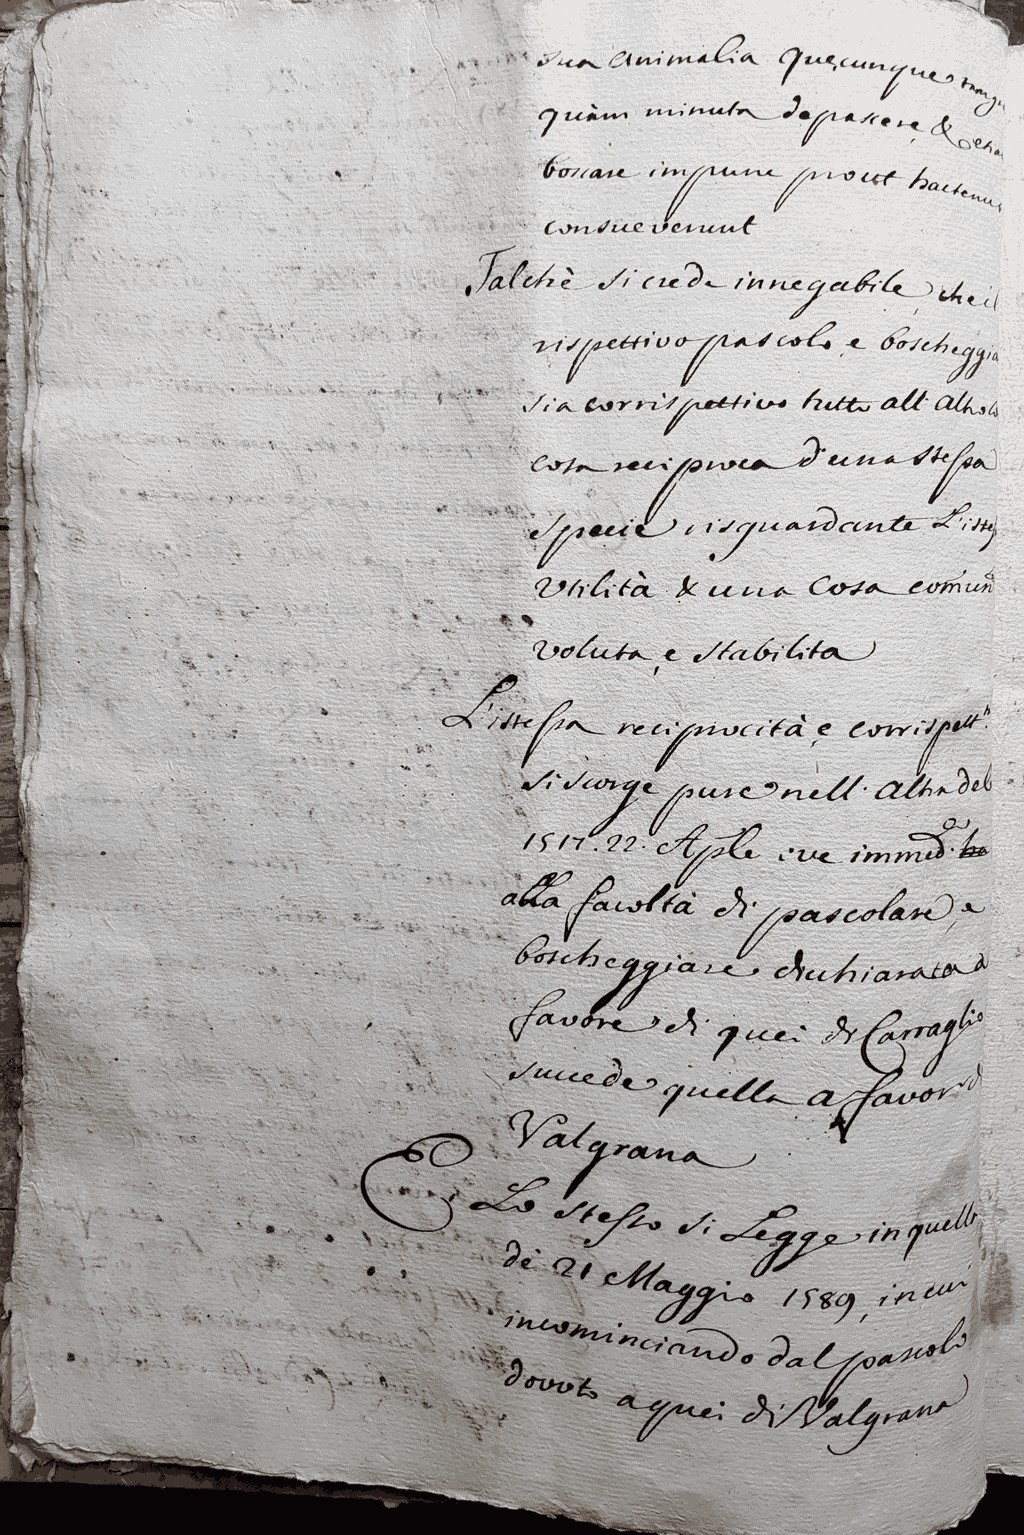 sua animalia quecunque
quàm minuta depascere &
boscare impune prout hactenus
consueverunt
Talchè si crede innegabile che il
rispettivo pascolo e boscheggia
sia corrispettivo tutto all altro
cosa reciproca d'una stessa
specie risguardante L'istes
Utilità & una Cosa comun
voluta e stabilita
L'istessa reciprocità e corrispett.
si scorge pure nell. altra del
1517. 22. Aple ove immed.
alla facoltà di pascolare e
boscheggiare dichiarata a
favore di quei di Carraglio
succede quella a favor di
Valgrana
E Lo stesso si Legge in quella
de 21 Maggio 1589, in cui
incominciando dal pascolo
dovuto a quei di Valgrana